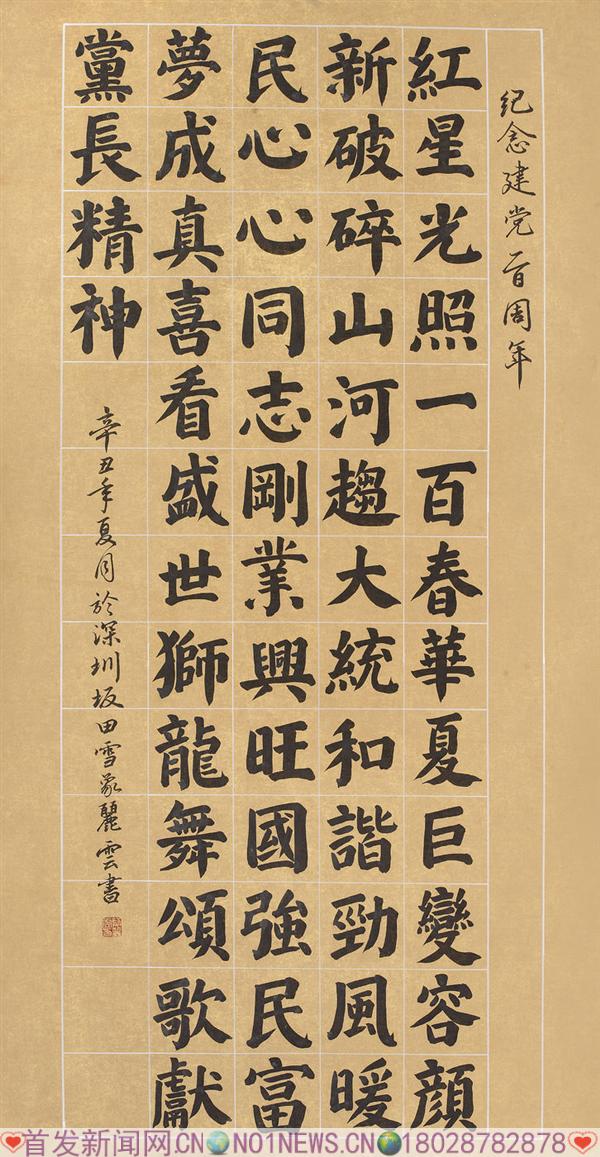 纪念建党一百周年
紅星光照一百春華夏巨變容顏
新破碎山河趨大統和諧勁風暖
民心心同志剛業興旺國強民富
夢成真喜看盛世獅龍舞頌歌獻
黨長精神
辛丑年夏月於深圳坂田雪象麗雲書
首发新闻网.CN NO1NEWS.CN 18028782878